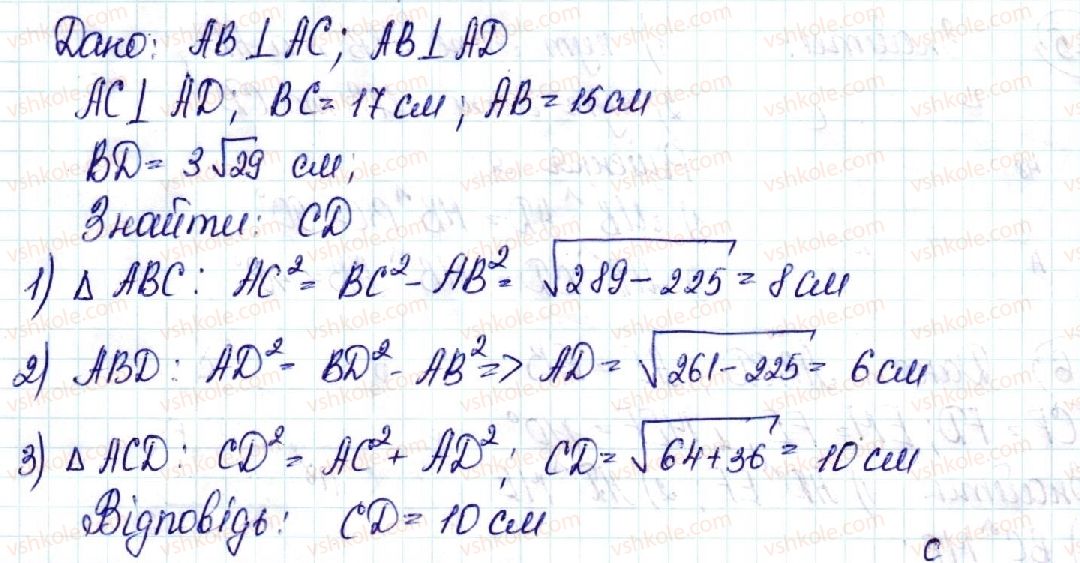 Дано: AB⊥AC; AB⊥AD
AC⊥AD; BC=17 см; AB=15 см
BD=3√29 см;
Знайти: CD
1) Δ ABC: AC²=BC²-AB²=√289-225=8 см
2) ABD: AD²-BD²-AB²=>AD=√261-225=6 см
3) Δ ACD: CD²=AC²+AD²; CD=√64+36=10 см
Відповідь: CD=10 см
C